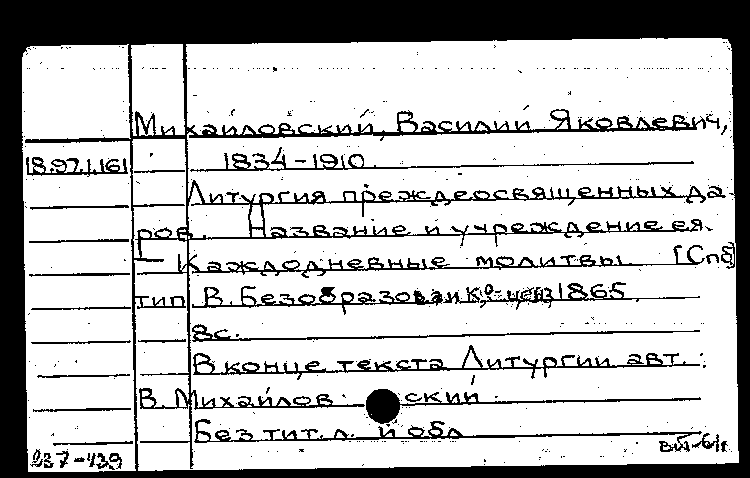 Михайловский, Василий Яковлевич,
18.97.1.161 1834-1910.
Литургия преждеосвященных да-
ров. Название и учреждение ея.
— Каждодневные молитвы. [Спб]
тип. В. Безобразова и К°, ценз. 1865.
8с.
В конце текста Литургии авт.:
В. Михайлов ский.
Без тит. л. и обл.
237-439